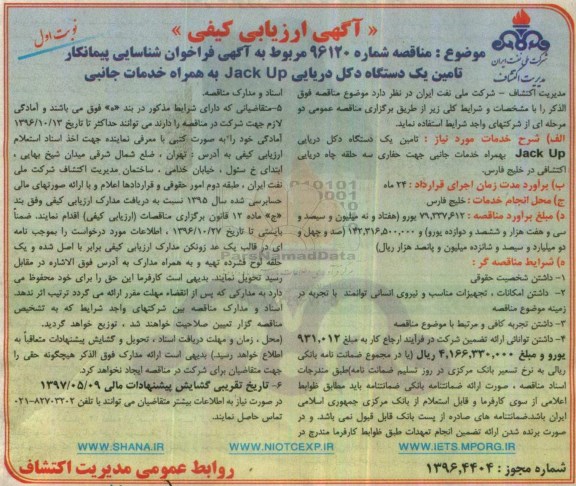 « آگهی ارزیابی کیفی »
نوبت اول
شرکت ملی نفت ایران
مدیریت اکتشاف
موضوع : مناقصه شماره ۹۶۱۲۰ مربوط به آگهی فراخوان شناسایی پیمانکار
تامین یک دستگاه دکل دریایی Jack Up به همراه خدمات جانبی
مدیریت اکتشاف – شرکت ملی نفت ایران در نظر دارد موضوع مناقصه فوق
الذکر را با مشخصات و شرایط کلی زیر از طریق برگزاری مناقصه عمومی دو
مرحله ای از شرکتهای واجد شرایط استفاده نماید.
الف) شرح خدمات مورد نیاز : تامین یک دستگاه دکل دریایی
Jack Up بهمراه خدمات جانبی جهت حفاری سه حلقه چاه دریایی
اکتشافی در خلیج فارس.
ب) برآورد مدت زمان اجرای قرارداد : ۲۴ ماه
ج) محل انجام خدمات : خلیج فارس
د) مبلغ برآورد مناقصه : ۷۹,۳۳۷,۶۱۲ یورو (هفتاد و نه میلیون و سیصد و
سی و هفت هزار و ششصد و دوازده یورو) و ۱۴۲,۳۱۶,۵۰۰,۰۰۰ (صد و چهل و
دو میلیارد و سیصد و شانزده میلیون و پانصد هزار ریال)
ه) شرایط مناقصه گر :
۱- داشتن شخصیت حقوقی
۲- داشتن امکانات ، تجهیزات مناسب و نیروی انسانی توانمند با تجربه در
زمینه موضوع مناقصه
۳- داشتن تجربه کافی و مرتبط با موضوع مناقصه
۴- داشتن توانائی ارائه تضمین شرکت در فرآیند ارجاع کار به مبلغ ۹۳۱,۰۱۲
یورو و مبلغ ۴,۱۶۶,۳۳۰,۰۰۰ ریال (یا در مجموع ضمانت نامه بانکی
ریالی به نرخ تسعیر بانک مرکزی در روز تسلیم ضمانت نامه)طبق مندرجات
اسناد مناقصه ، صورت ارائه ضمانتنامه بانکی ضمانتنامه باید مطابق ظوابط
اعلامی از سوی کارفرما و قابل استعلام از بانک مرکزی جمهوری اسلامی
ایران باشد.ضمانتنامه های صادره از پست بانک قابل قبول نمی باشد. و در
صورت برنده شدن ارائه تضمین انجام تعهدات طبق ظوابط کارفرما مندرج در
اسناد و مدارک مناقصه.
۵-متقاضیانی که دارای شرایط مذکور در بند «ه» فوق می باشند و آمادگی
لازم جهت شرکت در مناقصه را دارند می توانند حداکثر تا تاریخ ۱۳۹۶/۱۰/۱۳
آمادگی خود را به صورت کتبی با معرفی نماینده جهت اخذ اسناد استعلام
ارزیابی کیفی به آدرس : تهران ، ضلع شمال شرقی میدان شیخ بهایی ،
ابتدای خ سئول ، خیابان خدامی ، ساختمان مدیریت اکتشاف شرکت ملی
نفت ایران ، طبقه دوم امور حقوقی و قراردادها اعلام و با ارائه صورتهای مالی
حسابرسی شده سال ۱۳۹۵ نسبت به دریافت مدارک ارزیابی کیفی وفق بند
«ج» ماده ۱۲ قانون برگزاری مناقصات (ارزیابی کیفی) اقدام نمایند. ضمناً
بایستی تا تاریخ ۱۳۹۶/۱۰/۲۷ ، اطلاعات مورد درخواست را بموجب نامه
ای در قالب یک عد زونکن مدارک ارزیابی کیفی برابر با اصل شده و یک
حلقه لوح فشرده تهیه و به همراه مدارک به آدرس فوق الاشاره در مقابل
رسید تحویل نمایند. بدیهی است کارفرما این حق را برای خود محفوظ می
دارد به مدارکی که پس از انقضاء مهلت مقرر ارائه می گردد ترتیب اثر ندهد.
اسناد و مدارک مناقصه بین شرکتهای واجد شرایط که به تشخیص
مناقصه گزار تعیین صلاحیت خواهند شد ، توزیع خواهد گردید.
(محل ، زمان و مهلت دریافت اسناد ، تحویل و گشایش پیشنهادات متعاقباً به
اطلاع خواهد رسید.) بدیهی است ارائه مدارک فوق الذکر هیچگونه حقی را
جهت متقاضیان برای شرکت در مناقصه ایجاد نخواهد کرد.
۶- تاریخ تقریبی گشایش پیشنهادات مالی ۱۳۹۷/۰۵/۰۹
در صورت نیاز به اطلاعات بیشتر متقاضیان می توانند با تلفن ۸۲۷۰۳۲۰۲-۰۲۱
تماس حاصل نمایند.
ParsNamadData
WWW.SHANA.IR WWW.NIOTCEXP.IR WWW.IETS.MPORG.IR
شماره مجوز : ۱۳۹۶,۴۴۰۴
روابط عمومی مدیریت اکتشاف